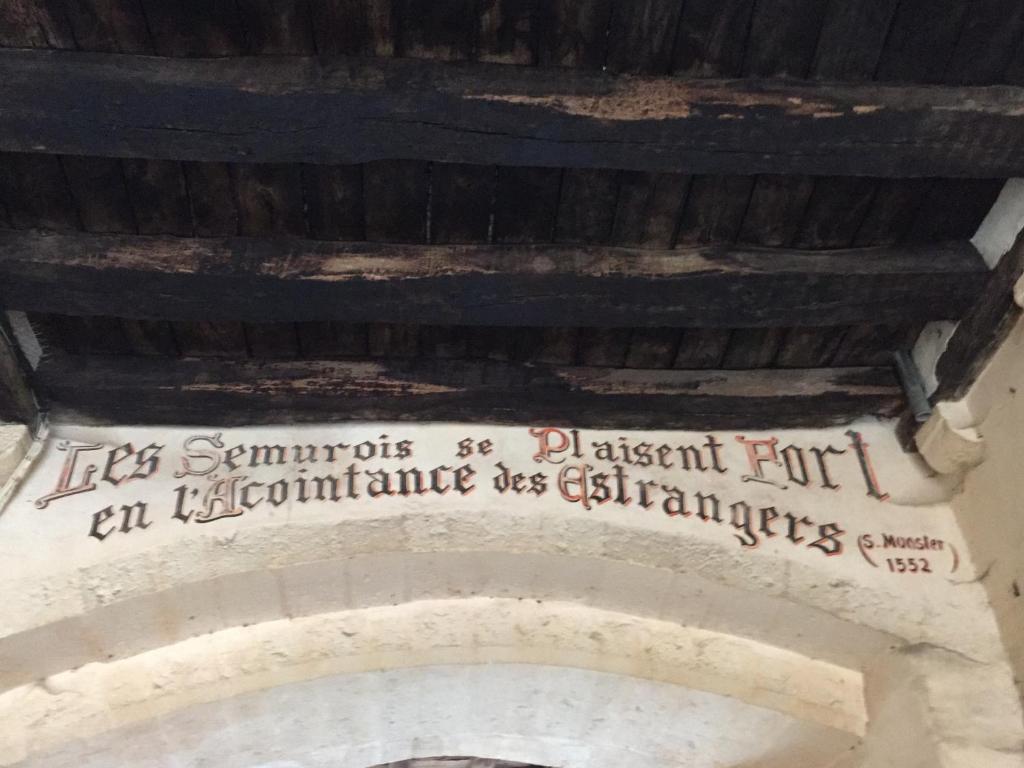 Les Semurois se Plaisent Fort
en l'Acointance des Estrangers
(S. Munster
1552)